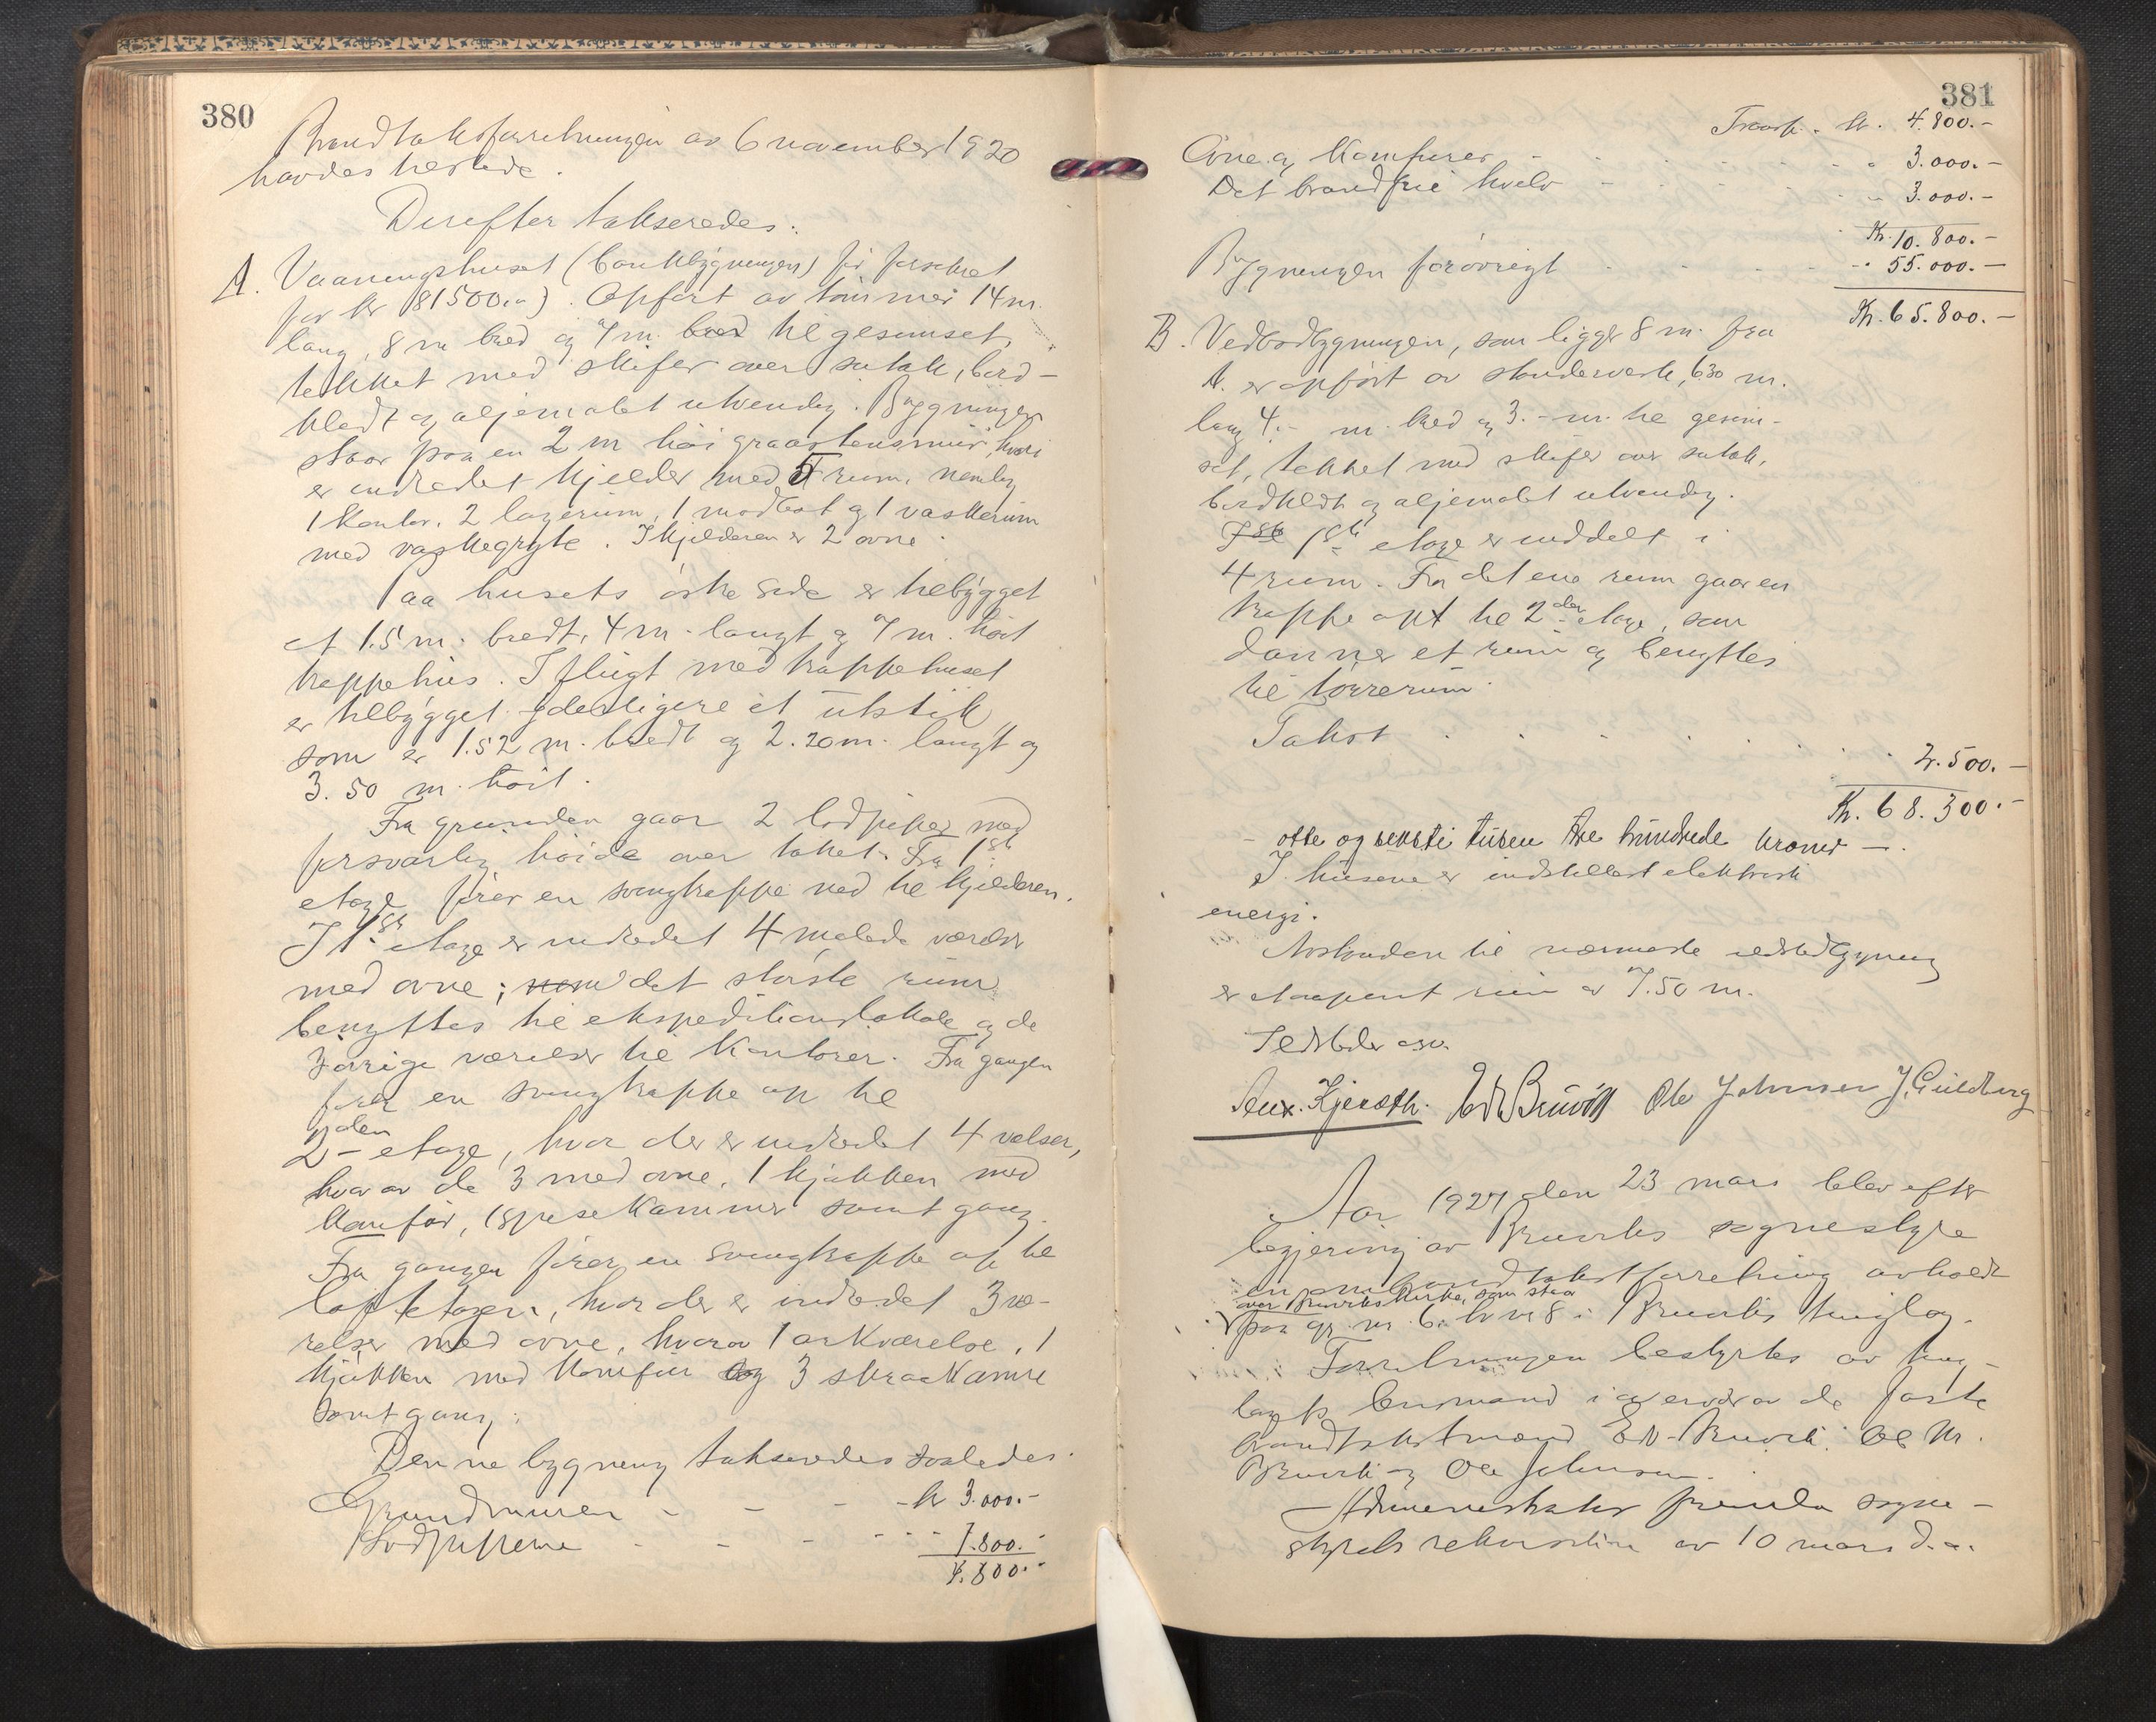 380
Brandtakstforretningen av 6 november 1920
havdes tilstede.
Derefter takseredes:
A. Vaaningshuset (bankbygningen) før forsikret
for kr 81500.-). Opført av tømmer 14 m.
lang, 8 m bred og 7 m. bred til gesimset,
tekket med skifer over sutak, bord-
klædt og oljemalet utvendig. Bygningen
staar paa en 2 m høi graastensmur, hvori
er indredet kjelder med 5 rum, nemlig
1 kontor, 2 lagerum, 1 matbod og 1 vaskerum
med vaskegryte. I kjelderen er 2 ovne.
Paa husets østre side er tilbygget
et 1.5 m. bredt, 4 m. langt og 7 m. høit
trappehus. I flugt med trappehuset
er tilbygget yderligere et utstik
som er 1.52 m. bredt og 2.20 m. langt og
3.50 m. høit.
Fra grunden gaar 2 lodpiper med
forsvarlig høide over taket. Fra 1ste
etage fører en svingtrappe ned til kjelderen.
I 1ste etage er indredet 4 malede værelser
med ovne; det største rum
benyttes til ekspeditionslokale og de
3 øvrige værelser til kontorer. Fra gangen
fører en svingtrappe op til
2den etage, hvor der er indredet 4 velser,
hvorav de 3 med ovne, 1 kjøkken med
komfør, 1 spisekammer samt gang.
Fra gangen fører en svingtrappe op til
loftetagen, hvor der er indredet 3 væ-
relser med ovne, hvorav 1 arkværelse, 1
kjøkken med komfur og 3 skraakamre
samt gang.
Denne bygning takseredes saaledes:
Grundmuren - - - kr 3.000.-
Lodpiperne - - - 1.800.-
4.800.-
381
Transp. kr. 4.800.-
Ovne og komfurer - 3.000.-
Det brandfrie hvelv - 3.000.-
Kr. 10.800.-
Bygningen forøvrigt - 55.000.-
Kr. 65.800.-
B. Vedbodbygningen, som ligger 8 m. fra
A. er opført av stenderverk, 630 m.
lang 4.- m. bred og 3.- m. til gesim-
set, tekket med skifer over sutak,
bordklædt og oljemalet utvendig.
1ste etage er inddelt i
4 rum. Fra det ene rum gaar en
trappe opt til 2den etage, som
danner et rum og benyttes
til tørrerum.
Takst 2.500.-
Kr. 68.300.-
- otte og seksti tusen tre hundrede kroner -.
I husene er indstallert elektrisk
energi.
Avstanden til nærmeste bygning
er aapent rum av 7.50 m.
Sedsteder osv.
Kjeroth. Edv Bruvik Ole Johnsen J. Guldberg
Aar 1927 den 23 mars blev efter
begjæring av Bruviks sognestyre
en brandtakstforretning avholdt
over Bruviks kirke, som staar
paa gr. nr. 6 br nr 8 i Bruvik tinglag.
Forretningen bestyrtes av ting-
lagets lensmand i nærvær av de faste
brandtakstmænd Edv. Bruvik, Ole Kr.
Bruvik og Ole Johnsen.
Administrator fremla sogne-
styrets rekvisition av 10 mars d.a.